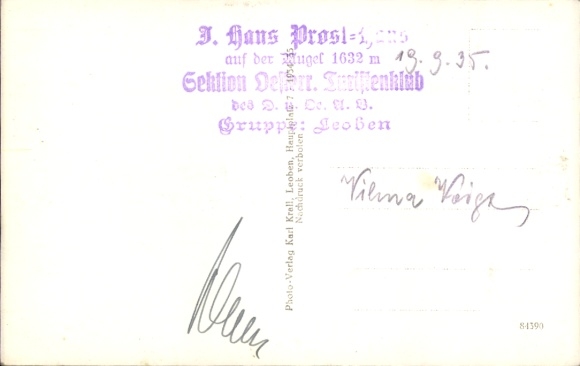 J. Hans Prosl-Haus
auf der Mugel 1632 m
Sektion Oesterr. Touristenklub
des D. u. Oe. A. V.
Gruppe: Leoben
19. 9. 35.
Photo-Verlag Karl Krall, Leoben, Hauptplatz 7
Nachdruck verboten
Vilma
84390